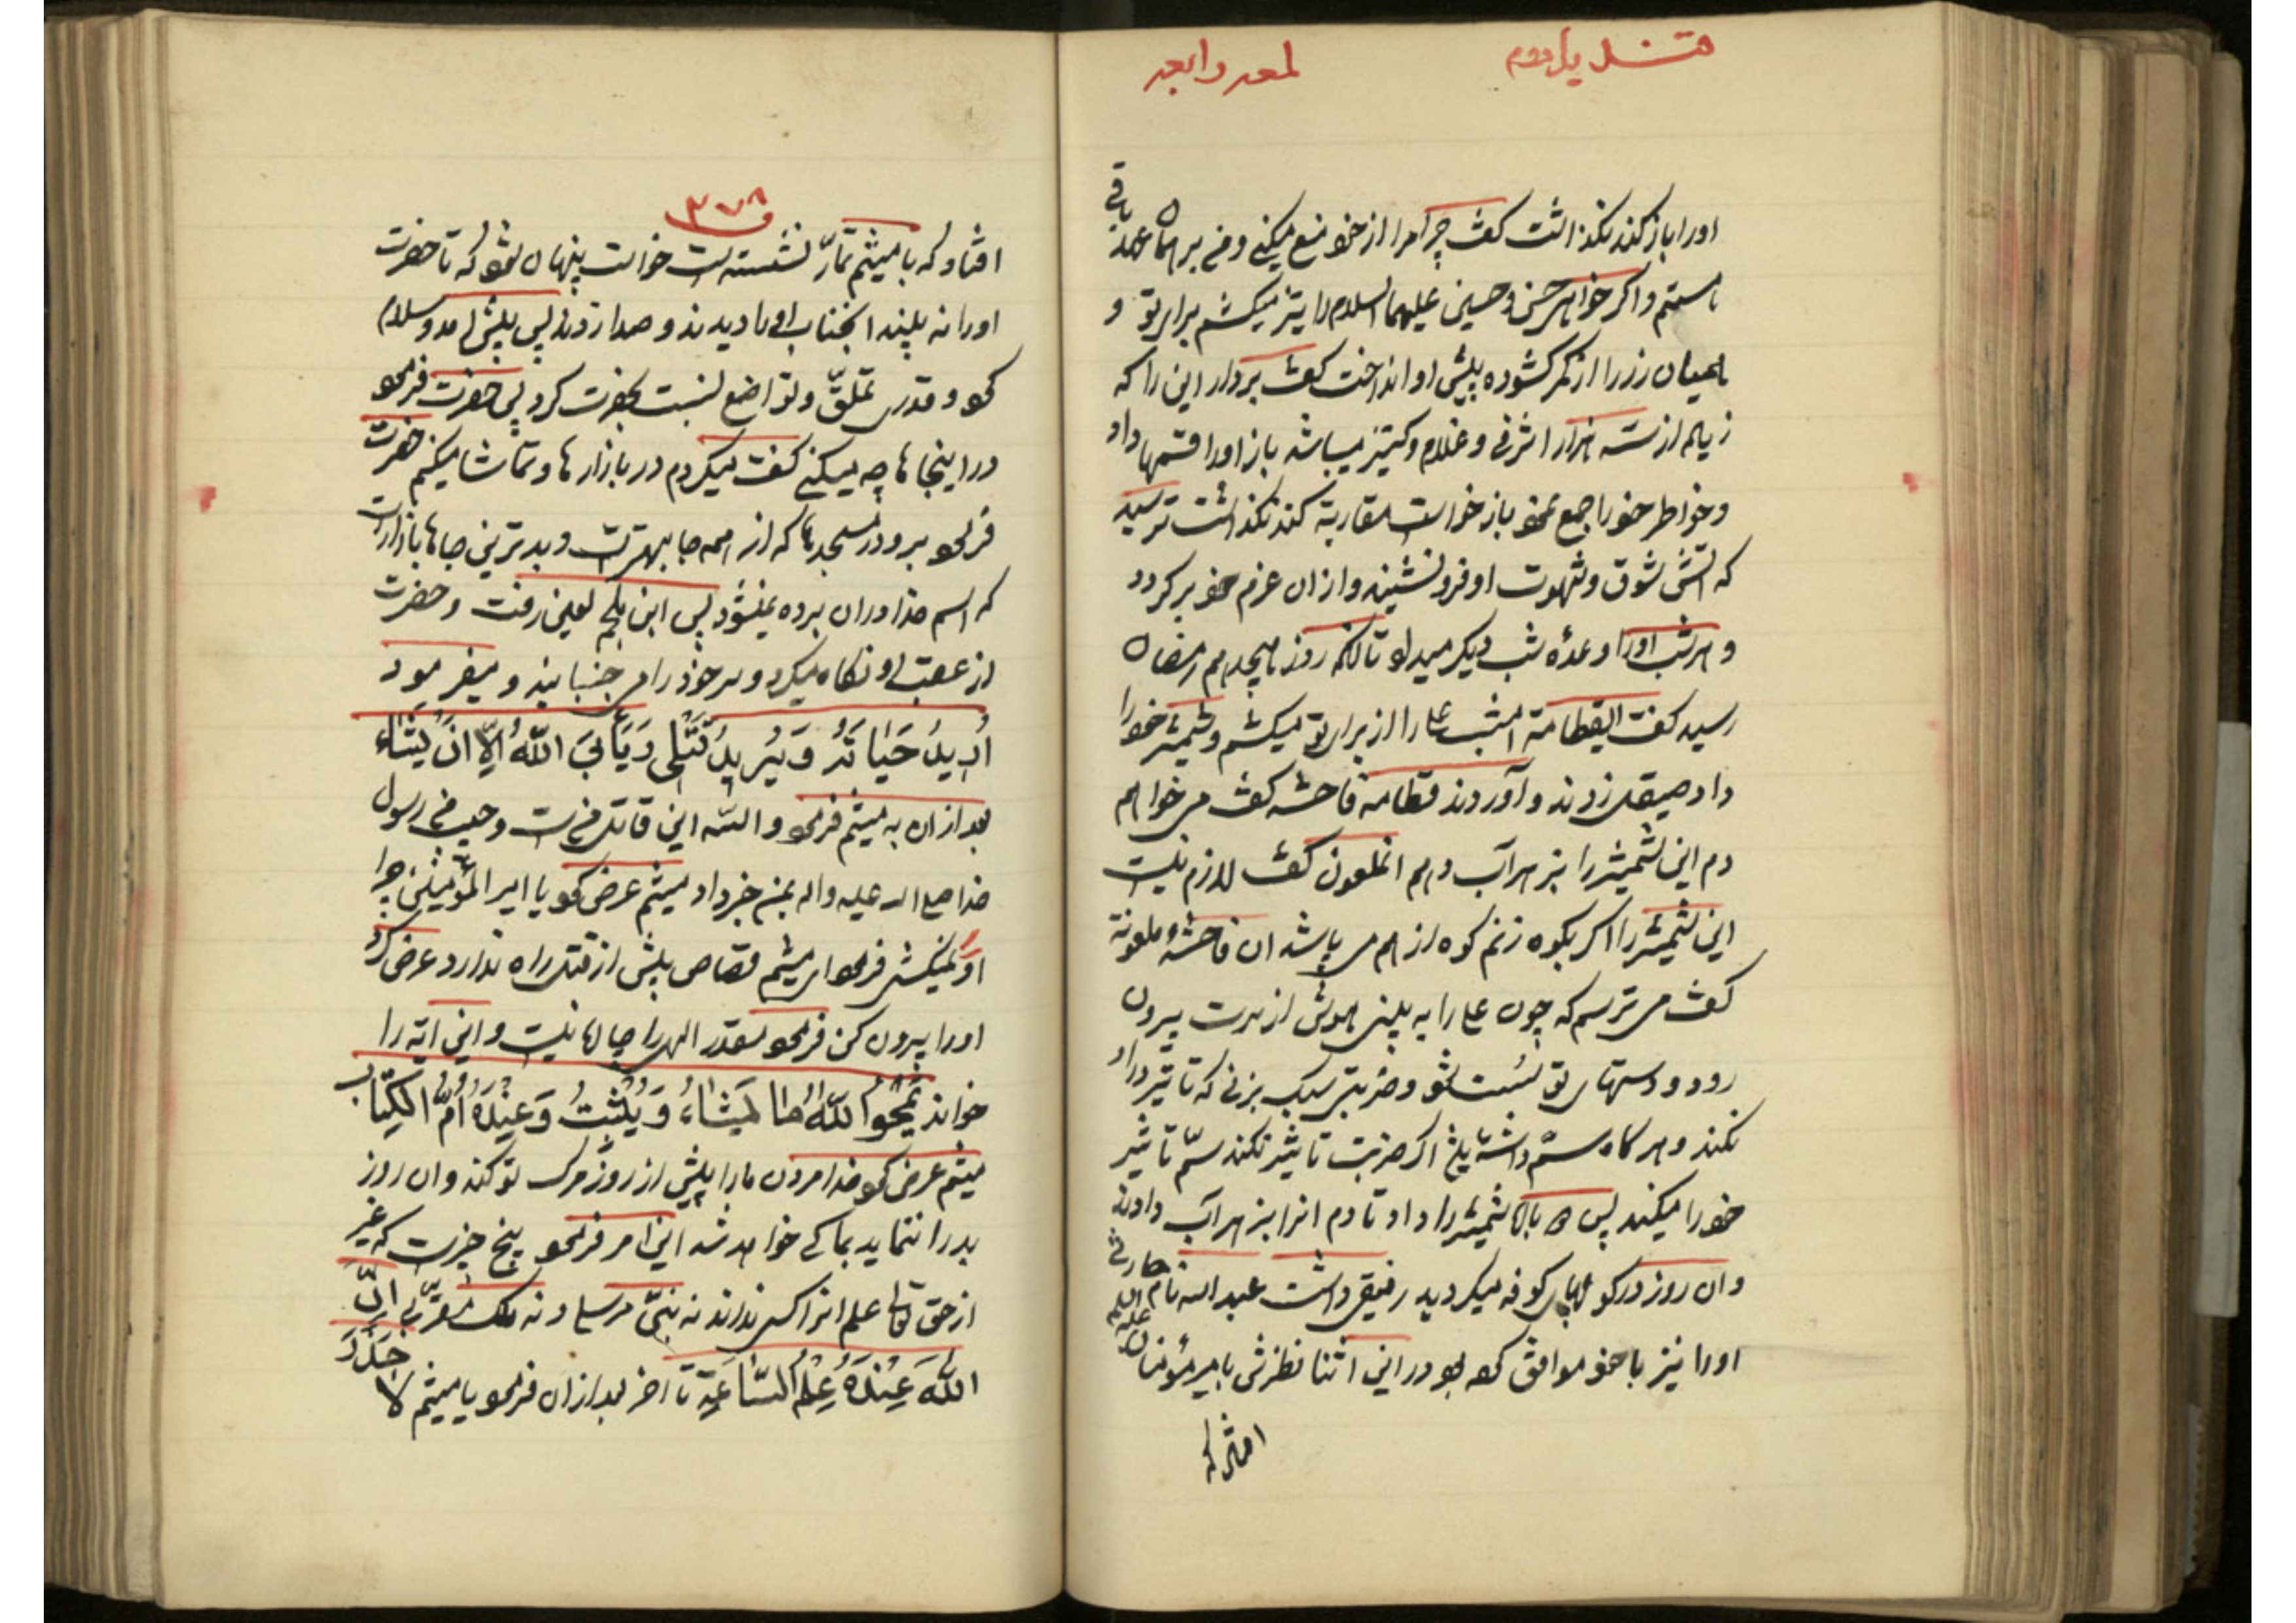 قندیل دوم لمعه رابعه
اورا باز کند نکذاشت کفت چرا مرا از خود منع میکنی و من بر همان عهد باقی
هستم و اکر خواهی حسن و حسین علیهما السلام را نیز میکشم برای تو و
همیان زر را از کمر کشوده پیش او انداخت کفت بردار این را که
زیاده از سه هزار اشرفی و غلام و کنیز میباشد باز اورا قسمها داد
و خواطر خود را جمع نمود باز خواست مقاربة کند نکذاشت ترسید
که اتش شوق و شهوت او فرو نشیند و از ان عزم خود برکردد
و هر شب اورا وعدهٔ شب دیکر میداد تا انکه روز هیجدهم رمضان
رسید کفت ایقطامه امشب علی را از برای تو میکشم و شمشیر خود را
داد صیقل زدند و آوردند قطامه فاحشه کفت می خواهم
دم این شمشیر را بزهر آب دهم انملعون کفت لازم نیست
این شمشیر را اکر بکوه زنم کوه از هم می پاشد ان فاحشهٔ ملعونة
کفت می ترسم که چون علی را به بینی هوش از سرت بیرون
رود و دستهای تو سست شود و ضربتی سبک بزنی که تاثیر در او
نکند و هرکاه سم داشته باشد اکر ضربت تاثیر نکند سم تاثیر
خود را میکند پس شمشیر را داد تا دم انرا بزهر آب دادند
و ان روز در کوچهای کوفه میکردید رفیقی داشت عبد الله نام حارثی
اورا نیز با خود موافق کرده بود در این اثنا نظرش بامیر مؤمنان علیه السلام
افتاد که
۳۷۸
افتاد که با میثم تمار نشسته است خواست پنهان شود که تا حضرت
اورا نه بیند انجناب اورا دیدند و صدا زدند پس پیش امد و سلام
کرد و قدری تملق و تواضع نسبت بحضرت کرد پس حضرت فرمود
در اینجاها چه میکنی کفت میکردم در بازارها و تماشا میکنم حضرت
فرمود برو در مسجدها که از همه جا بهتر است و بدترین جاها بازار است
که اسم خدا در ان برده نمیشود پس ابن ملجم لعین رفت و حضرت
از عقب او نکاه میکرد و سر خود را می جنبانید و میفرمود
اُرِیدُ حَیٰاتَهُ وَ یُرِیدُ قَتْلِی وَ یَأبیَ اللّهُ اِلّا اَنْ یَشٰاءَ
بعد از ان به میثم فرمود والله این قاتل من است و حبیب من رسول
خدا صلی الله علیه و اله بمن خبر داد میثم عرض کرد یا امیر المؤمنین چرا
او را نمیکشی فرمود ای میثم قصاص پیش از قتل راه ندارد عرض کرد
اورا بیرون کن فرمود مقدر الهی را چاره نیست و این ایه را
خواند یَمْحُو اللّهُ مٰا یَشٰاءُ وَ یُثْبِتُ وَ عِنْدَهُ اُمُّ الْکِتٰابِ
میثم عرض کرد خدا مردن ما را پیش از روز مرک تو کند و ان روز
بد را ننماید بما کی خواهد شد این امر فرمود پنج چیز است که غیر
از حق تعالی علم انرا کسی نداند نه نبیّ مرسل و نه ملک مقرّب اِنَّ
اللّهَ عِنْدَهُ عِلْمُ السّٰاعَةِ تا اخر بعد از ان فرمود یا میثم لا